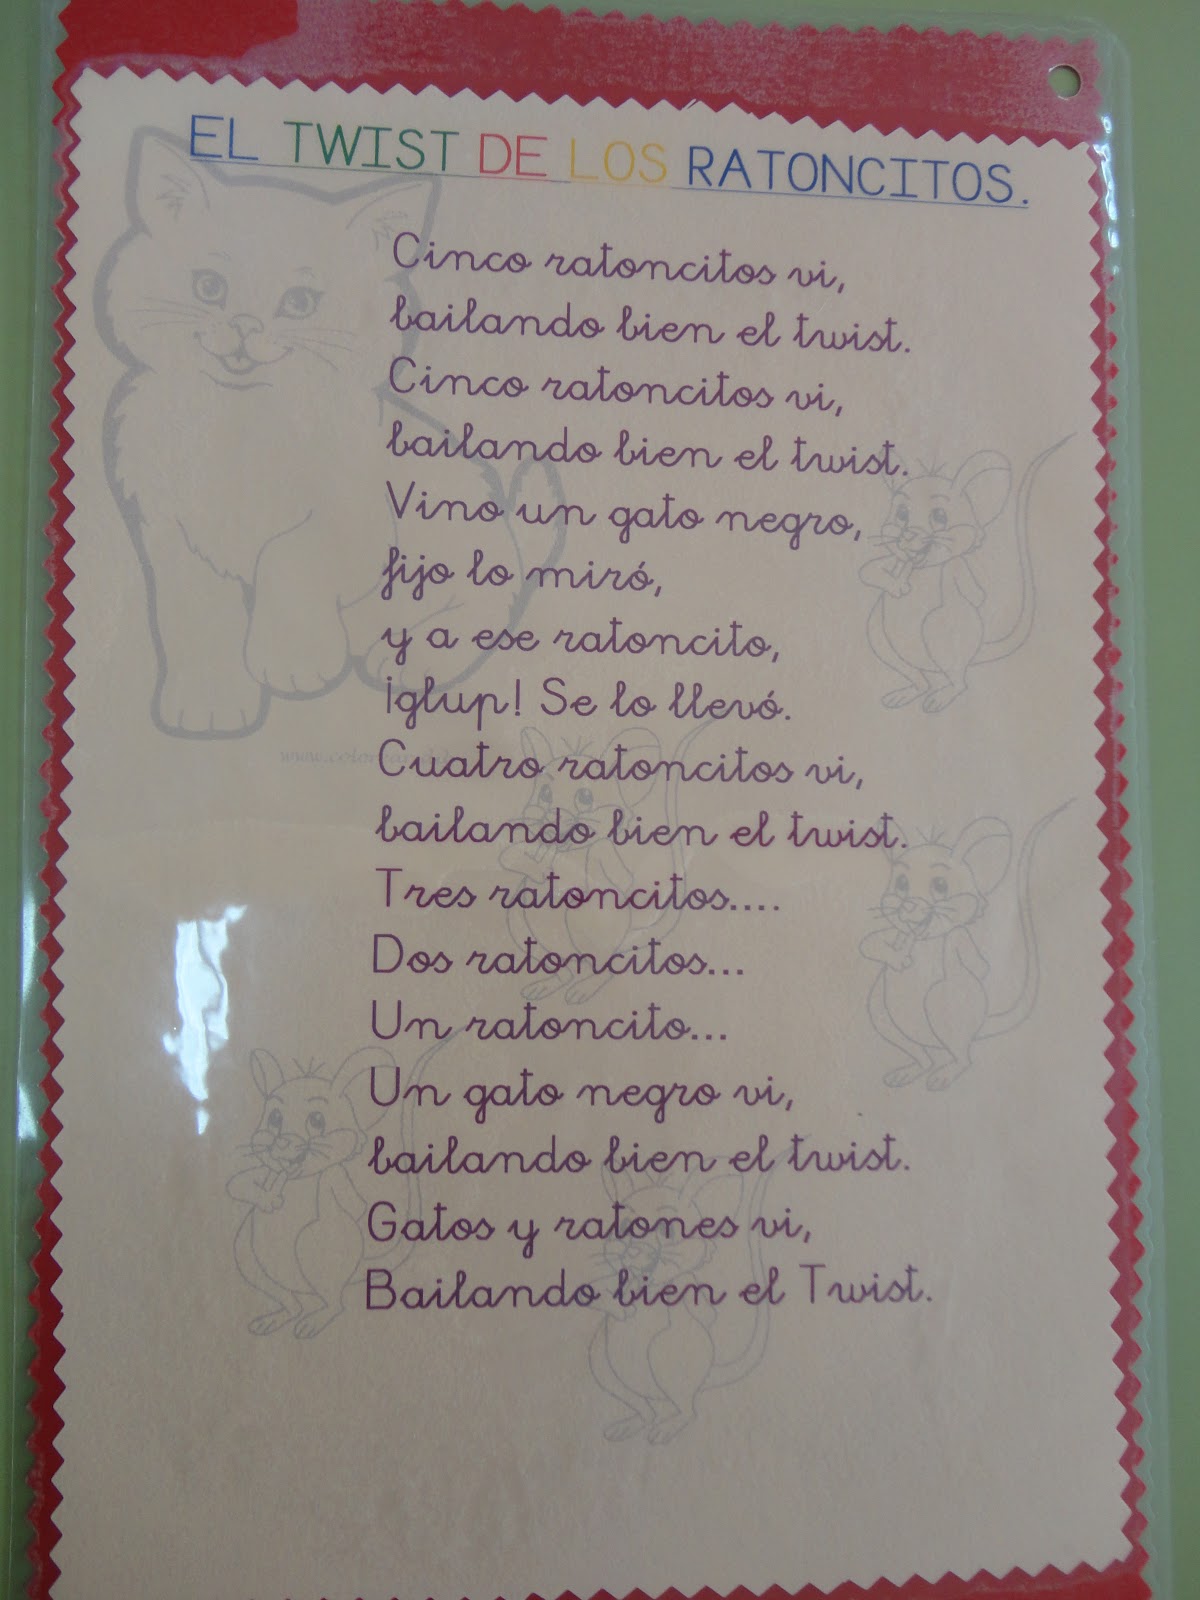 EL TWIST DE LOS RATONCITOS.
Cinco ratoncitos vi,
bailando bien el twist.
Cinco ratoncitos vi,
bailando bien el twist.
Vino un gato negro,
fijo lo miró,
y a ese ratoncito,
¡glup! Se lo llevó.
Cuatro ratoncitos vi,
bailando bien el twist.
Tres ratoncitos....
Dos ratoncitos...
Un ratoncito...
Un gato negro vi,
bailando bien el twist.
Gatos y ratones vi,
Bailando bien el Twist.